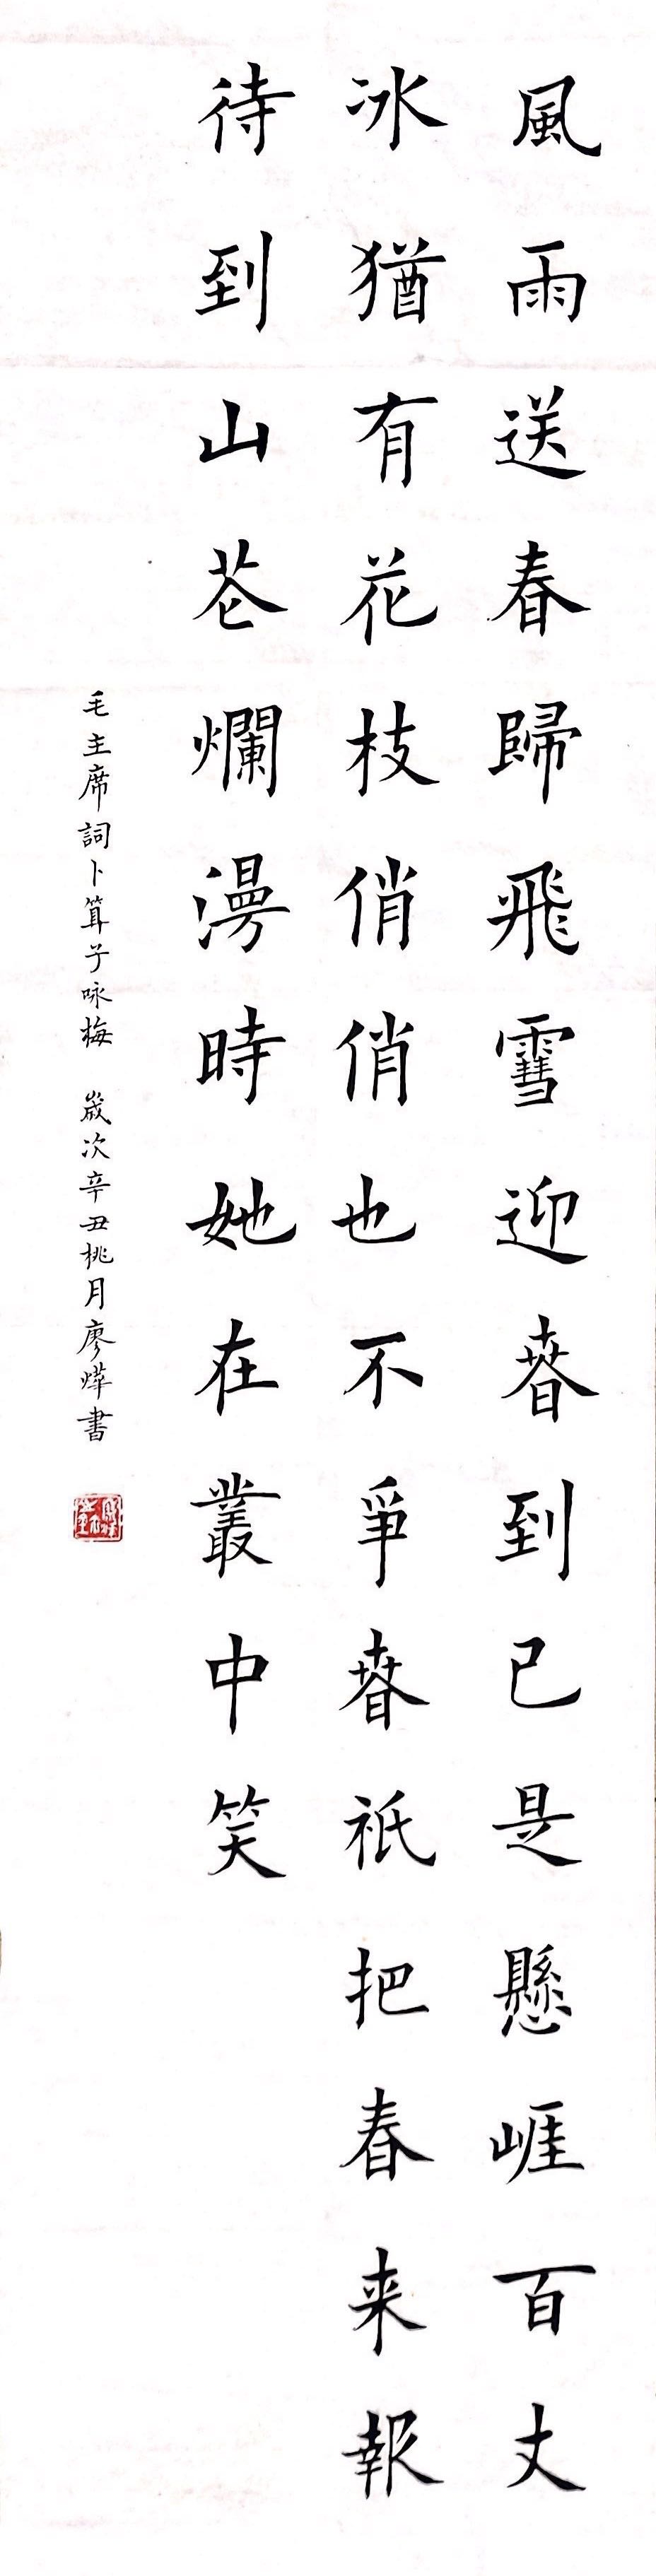 風雨送春歸飛雪迎春到已是懸崖百丈
冰猶有花枝俏俏也不爭春祇把春来報
待到山花爛漫時她在叢中笑
毛主席詞卜筭子咏梅 歲次辛丑桃月廖燁書